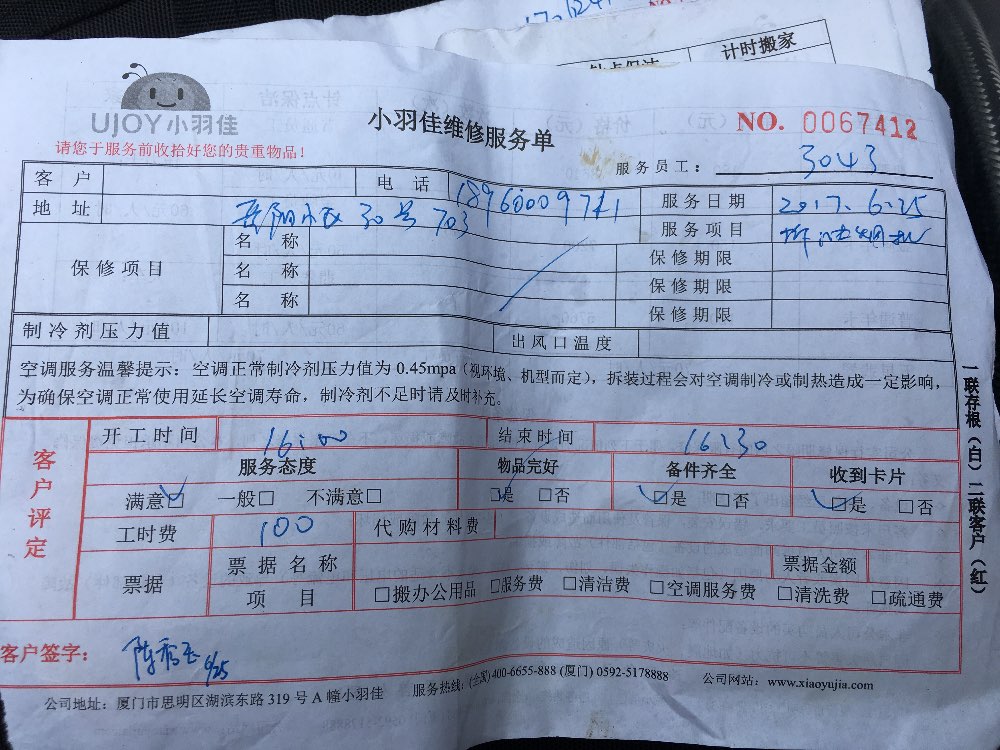 计时搬家
UJOY小羽佳
请您于服务前收拾好您的贵重物品！
小羽佳维修服务单
NO. 0067412
服务员工： 3043
客户 电话 18960009741 服务日期 2017.6.25
地址 岳阳小区30号703 服务项目
保修项目 名称 保修期限
名称 保修期限
名称 保修期限
制冷剂压力值 出风口温度
空调服务温馨提示：空调正常制冷剂压力值为 0.45mpa（视环境、机型而定），拆装过程会对空调制冷或制热造成一定影响，
为确保空调正常使用延长空调寿命，制冷剂不足时请及时补充。
一联存根（白）二联客户（红）
客户评定
开工时间 16:00 结束时间 16:30
服务态度 物品完好 备件齐全 收到卡片
满意□ 一般□ 不满意□ □是 □否 □是 □否 □是 □否
工时费 100 代购材料费
票据 票据名称 票据金额
项目 □搬办公用品 □服务费 □清洁费 □空调服务费 □清洗费 □疏通费
客户签字： 6/25
公司地址：厦门市思明区湖滨东路 319 号 A 幢小羽佳 服务热线：(全国)400-6655-888 (厦门) 0592-5178888 公司网站：www.xiaoyujia.com